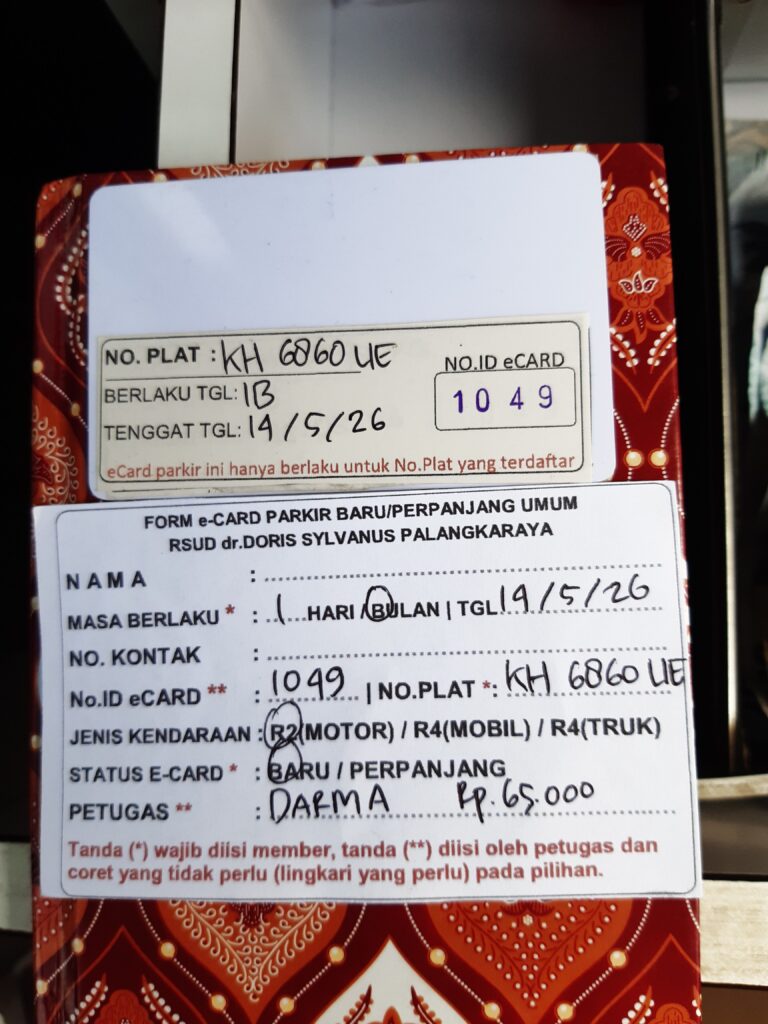 NO. PLAT : KH 6860 UE
NO.ID eCARD
BERLAKU TGL: 1B
1049
TENGGAT TGL: 19/5/26
eCard parkir ini hanya berlaku untuk No.Plat yang terdaftar
FORM e-CARD PARKIR BARU/PERPANJANG UMUM
RSUD dr.DORIS SYLVANUS PALANGKARAYA
NAMA :
MASA BERLAKU * : 1 HARI / BULAN | TGL 19/5/26
NO. KONTAK :
No.ID eCARD ** : 1049 | NO.PLAT *: KH 6860 UE
JENIS KENDARAAN : R2(MOTOR) / R4(MOBIL) / R4(TRUK)
STATUS E-CARD * : BARU / PERPANJANG
PETUGAS ** : DARMA Rp. 65.000
Tanda (*) wajib diisi member, tanda (**) diisi oleh petugas dan
coret yang tidak perlu (lingkari yang perlu) pada pilihan.